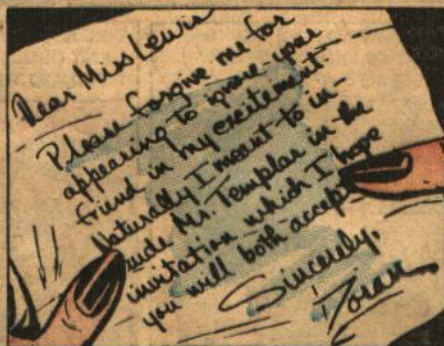 Dear Miss Lewis
Please forgive me for
appearing to ignore your
friend in my excitement.
Naturally I meant to in-
clude Mr. Templar in the
invitation which I hope
you will both accept.
Sincerely,
Doran